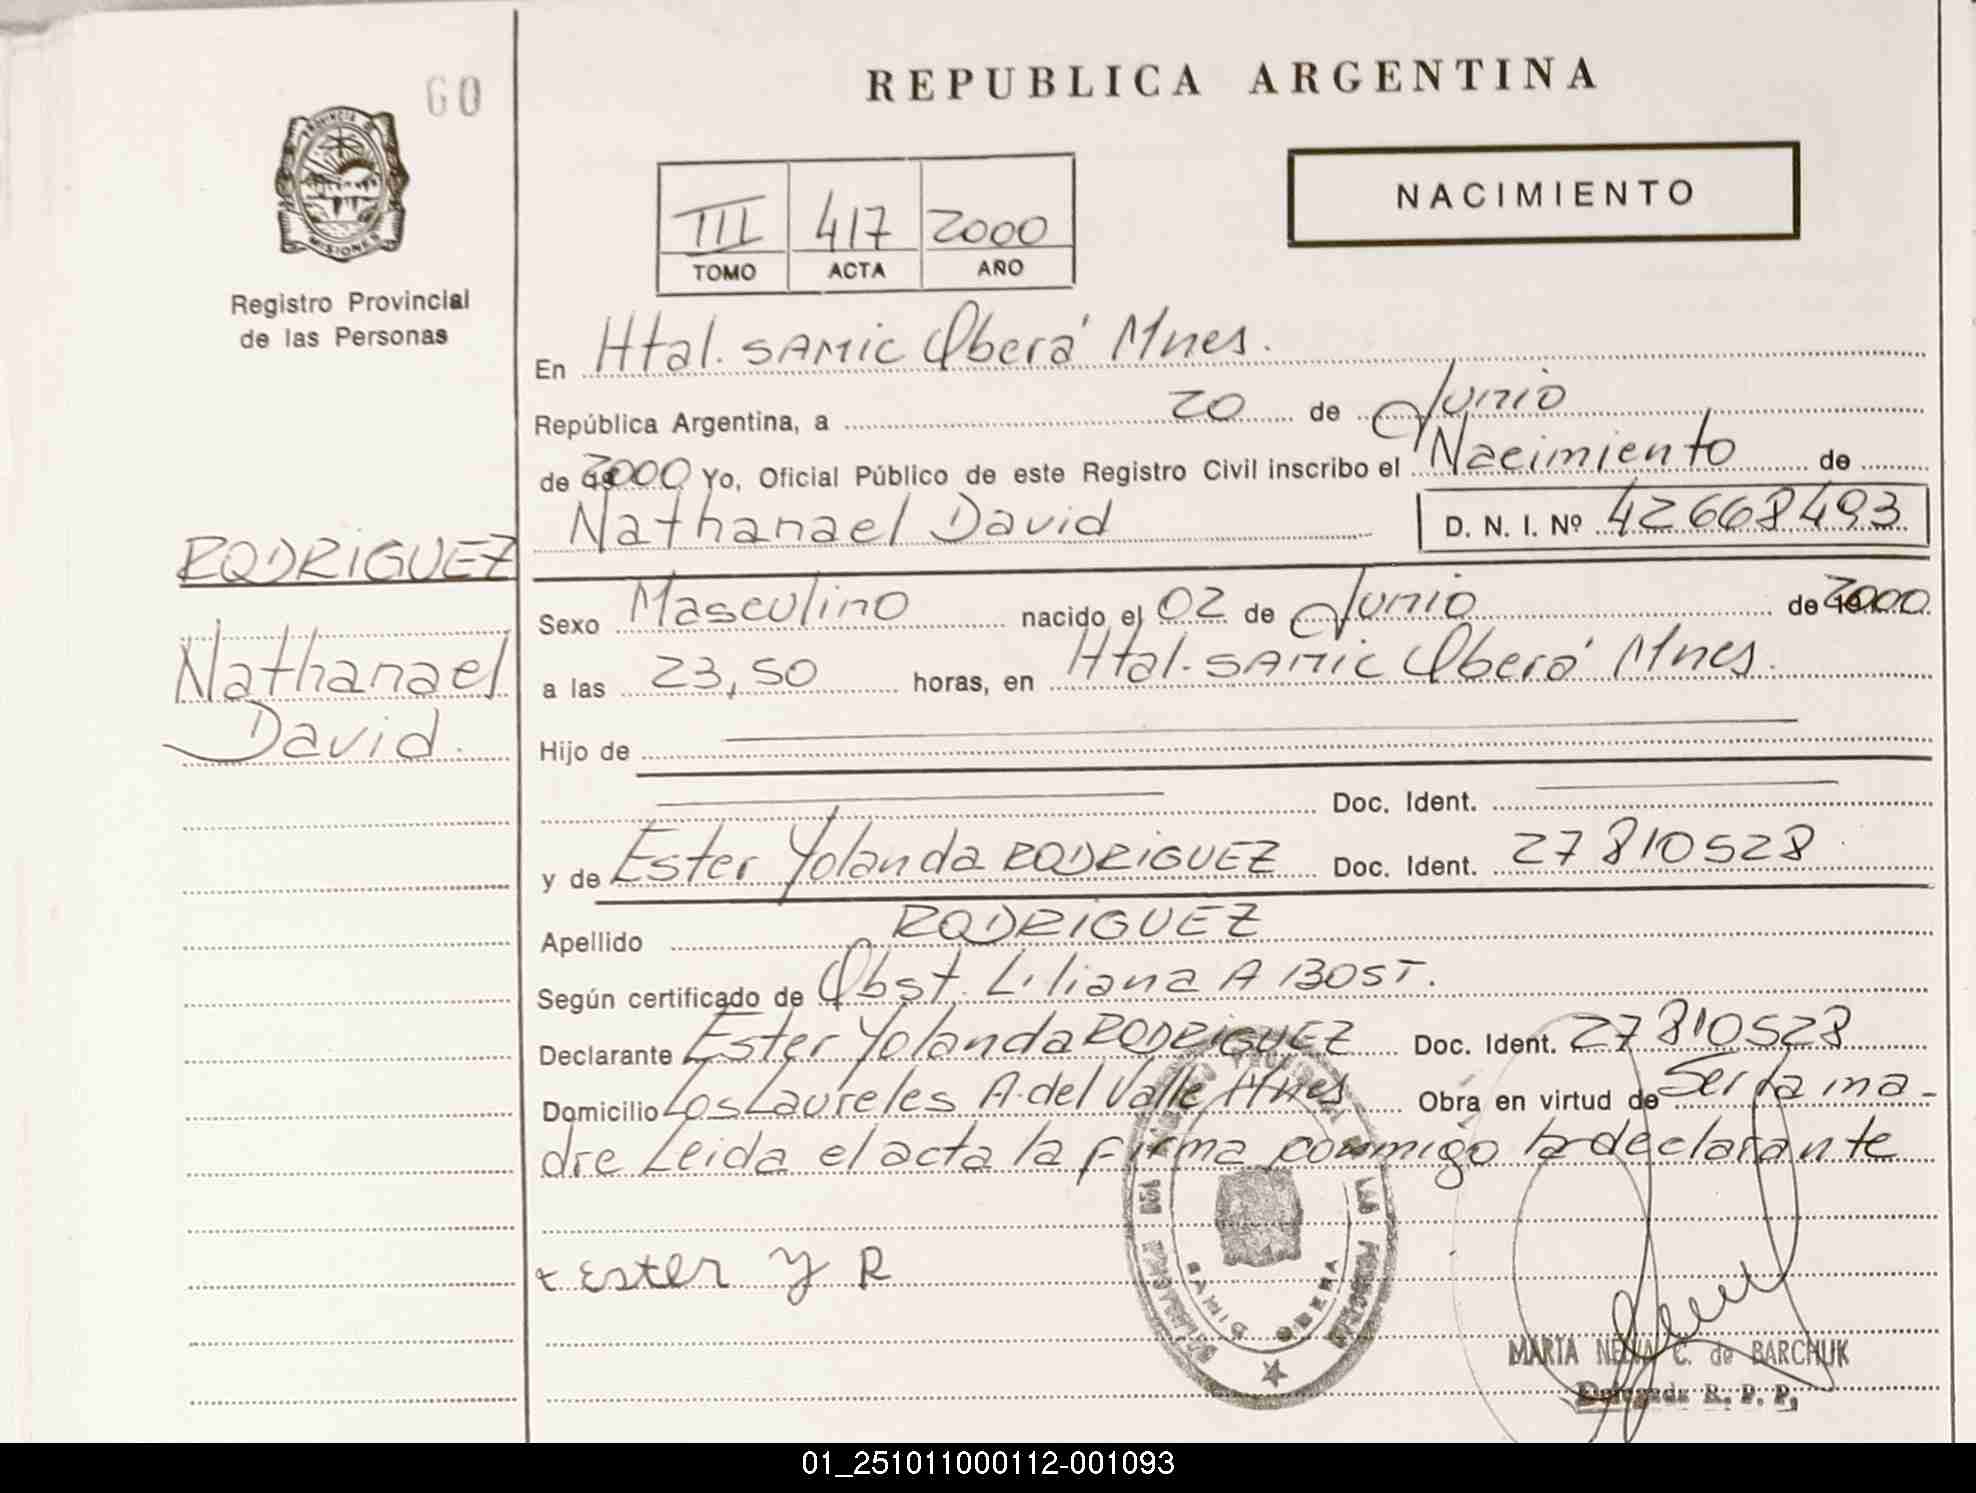 60
PROVINCIA DE
MISIONES
Registro Provincial
de las Personas
REPUBLICA ARGENTINA
NACIMIENTO
III 417 2000
TOMO ACTA AÑO
En Htal. SAMIC Oberá Mnes.
República Argentina, a 20 de Junio
de 2000 Yo, Oficial Público de este Registro Civil inscribo el Nacimiento de
Nathanael David D. N. I. Nº 42668493
RODRIGUEZ
Nathanael
David.
Sexo Masculino nacido el 02 de Junio de 2000
a las 23,50 horas, en Htal. SAMIC Oberá Mnes.
Hijo de
Doc. Ident.
y de Ester Yolanda RODRIGUEZ Doc. Ident. 27810528
Apellido RODRIGUEZ
Según certificado de Obst. Liliana A BOST.
Declarante Ester Yolanda RODRIGUEZ Doc. Ident. 27810528
Domicilio Los Laureles A. del Valle Mnes Obra en virtud de Ser la ma-
dre Leida el acta la firma conmigo la declarante
Ester Y R
SAMIC OBERA
MARIA NELVA C. de BARCHUK
Delegada R. P. P.
01_251011000112-001093